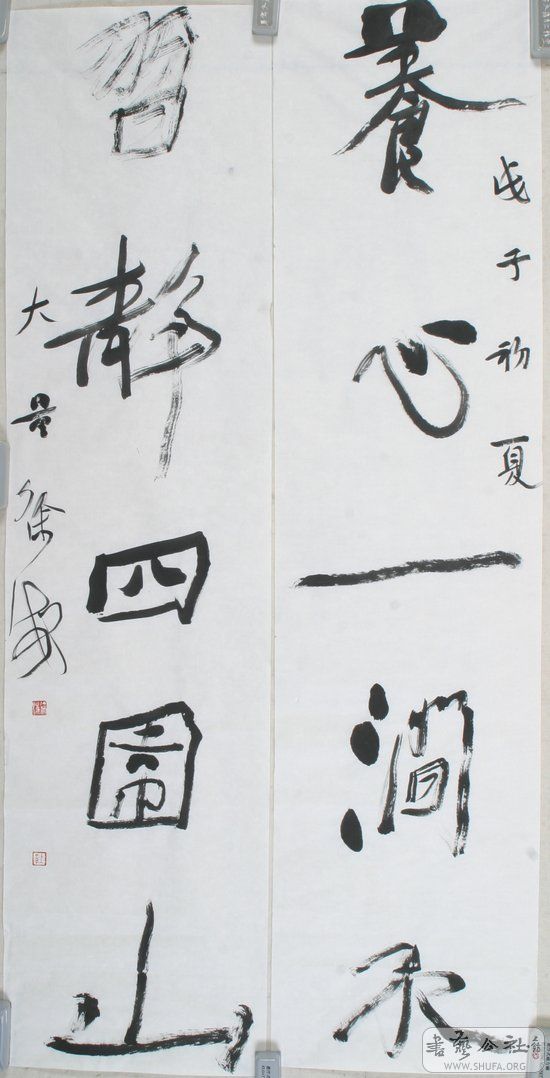 養心一澗水
戊子初夏
習靜四圍山
大
徐海
書藝公社
WWW.SHUFA.ORG